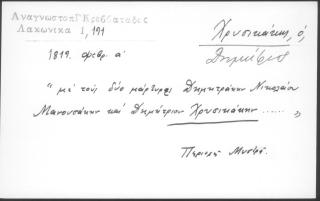 Αναγνωστοπ Γ Κρεββατάδες
Λακωνικά 1, 191
Χρυσικάκης, ὁ,
Δημήτριος
1819. Φεβρ. α΄
"μέ τούς δύο μάρτυρες Δημητράκην Νικολάου
Μανουσάκην καί Δημήτριον Χρυσικάκην ...... "
Περιοχή Μυστρᾶ.